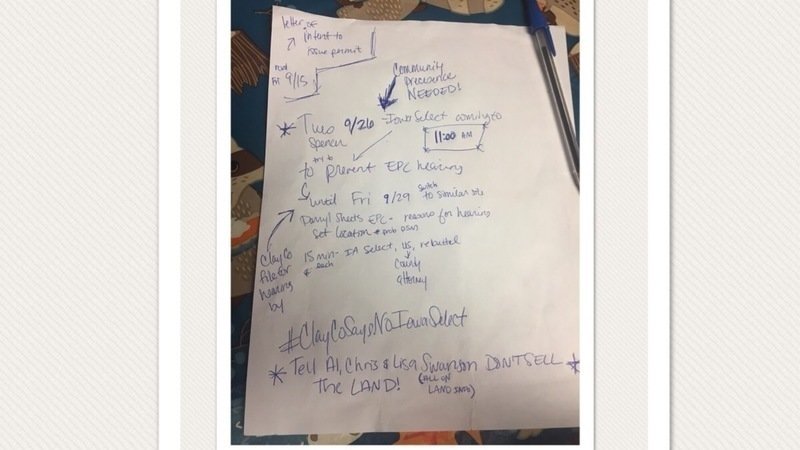 letter of
intent to
issue permit
Fri 9/15
Community
NEEDED!
* Tues 9/26 - Iowa Select coming to
Spencer
11:00 AM
try to
to prevent EPC hearing
until Fri 9/29 switch to similar site
Darryl Sheets EPC - reasons for hearing
Set location
Clay Co
file for
hearing
by
15 min - IA Select, us, rebuttel
each
County
attorney
#ClayCoSaysNoIowaSelect
* Tell Al, Chris & Lisa Swanson DON'T SELL *
The LAND! (ALL ON
LAND INFO)